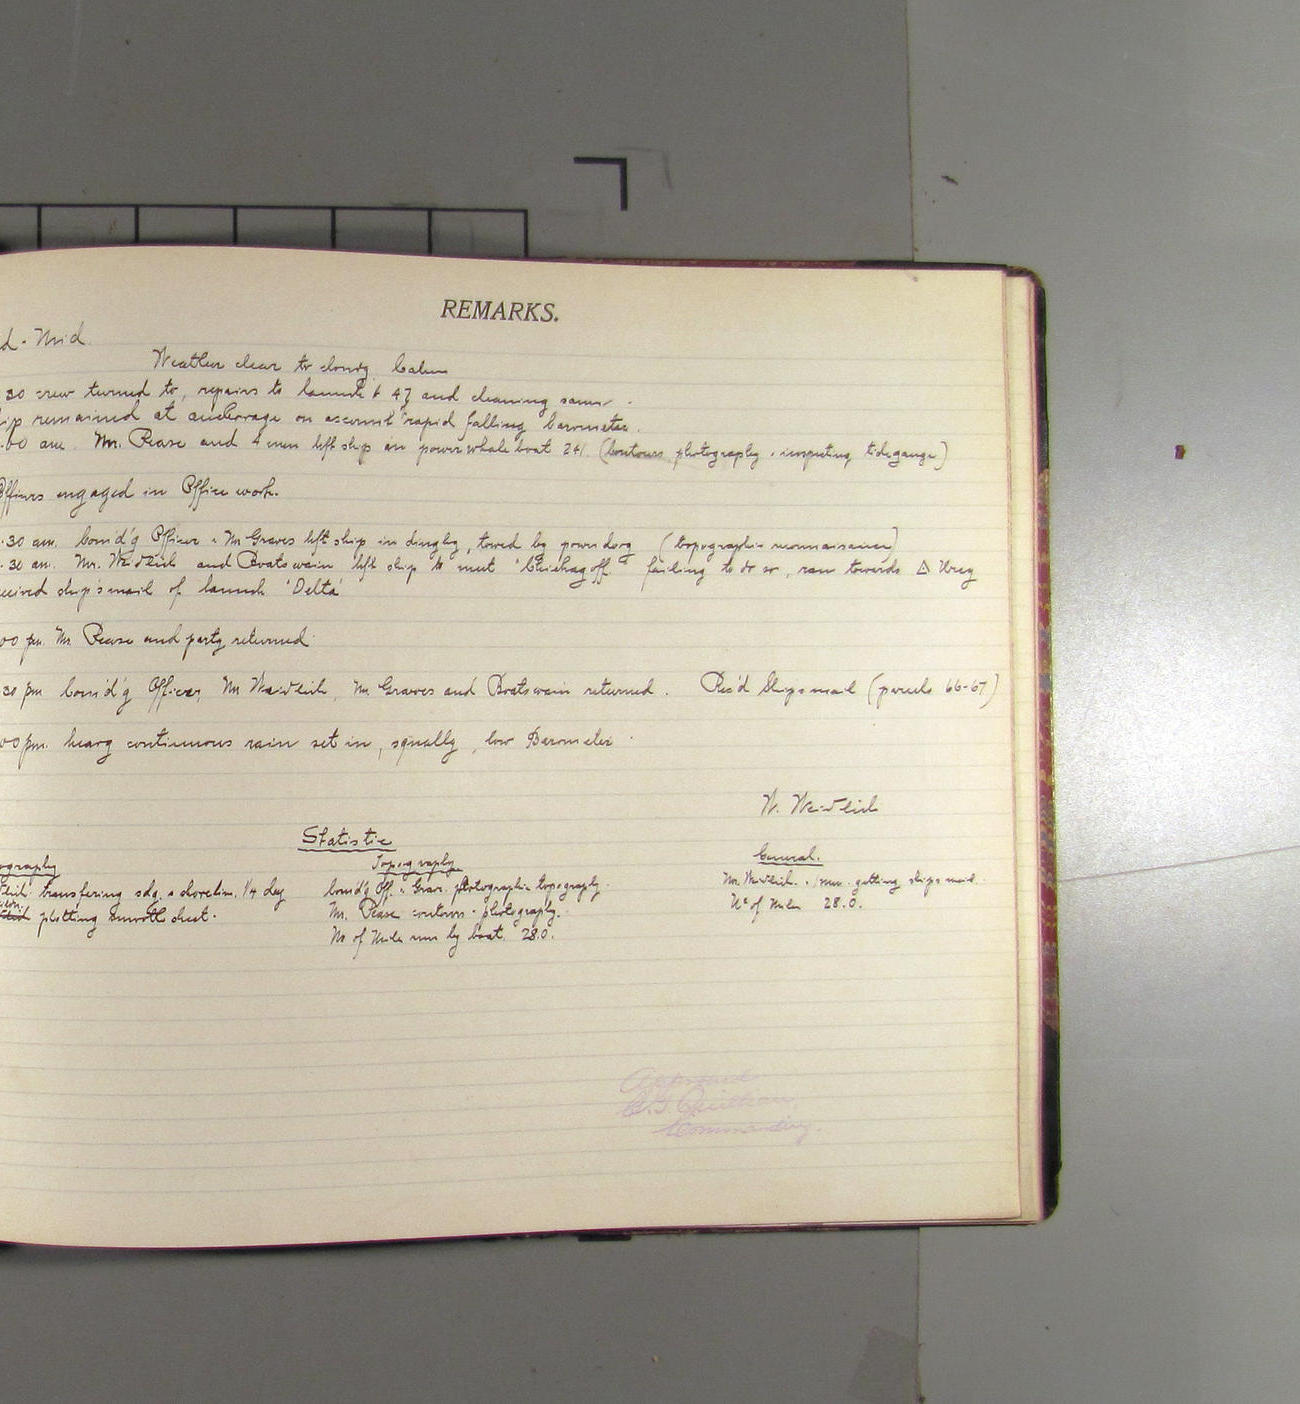 REMARKS.
d - Mid.
Weather clear to cloudy. Calm
30 crew turned to, repairs to launch # 47 and cleaning same.
ip remained at anchorage on account rapid falling barometer.
00 am. Mr. Pease and 4 men left ship in power whale boat 241. (Contours photography & inspecting tide gauge)
Officers engaged in Office work.
.30 am. Com'd'g Officer & Mr Graves left ship in dinghy, towed by power dory (topographic reconnaissance)
.30 am. Mr. Weidlich and Boatswain left ship to meet "Chichagoff" failing to do so, ran towards Δ
ceived ship's mail of launch 'Delta'
00 pm. Mr. Pease and party returned
30 pm Com'd'g Officer, Mr Weidlich, Mr. Graves and Boatswain returned. Rec'd Ships mail (parcels 66-67)
00 pm. heavy continuous rain set in, squally, low Barometer.
W. Weidlich
Statistic
ography
Topography
General.
transfering sdg. & shoreline. 1/4 day
Com'd'g Off. & Grav. photographic topography.
Mr. Weidlich. & 1 man. getting ships mail.
plotting smooth sheet.
Mr. Pease contours - photography.
No of Miles 28.0.
No of Miles run by boat. 28.0.
Approved
Commanding.